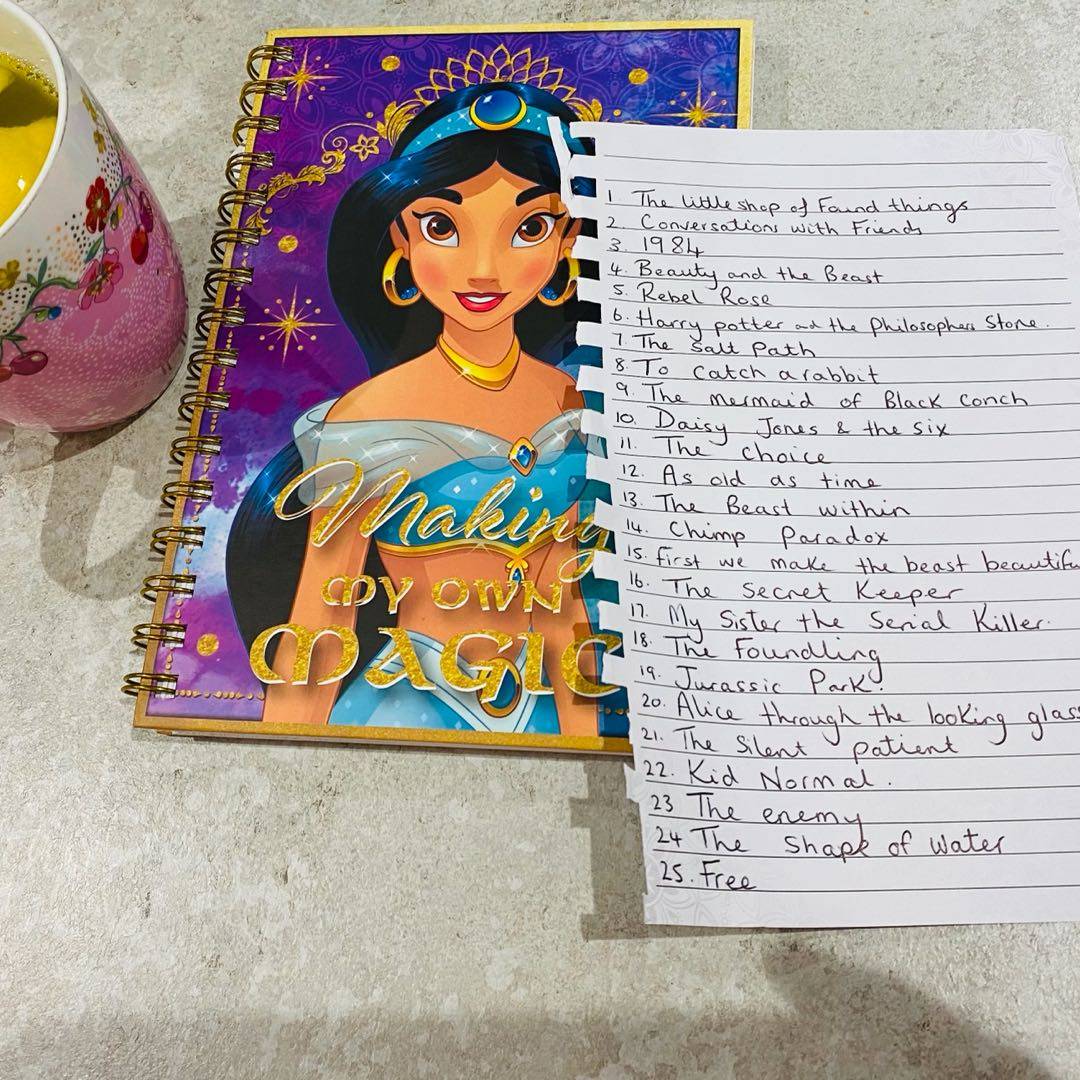 Making
MY OWN
MAGIC
1 The little shop of Found things
2. Conversations with Friends
3. 1984
4. Beauty and the Beast
5. Rebel Rose
6. Harry potter and the Philosophers Stone.
7. The Salt Path
8. To catch a rabbit
9. The mermaid of Black Conch
10. Daisy Jones & the six
11. The choice
12. As old as time
13. The Beast within
14. Chimp Paradox
15. First we make the beast beautifu
16. The Secret Keeper
17. My Sister the Serial Killer.
18. The Foundling
19. Jurassic Park.
20. Alice through the looking glass
21. The Silent patient
22. Kid Normal.
23 The enemy
24 The Shape of water
25. Free